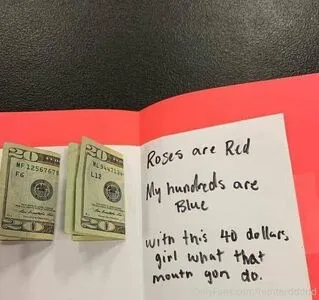 20
20
MF 1256767
ML 9447
F6
L12
20
20
Roses are Red
My hundreds are
Blue
with this 40 dollars,
girl what that
mouth gon do.